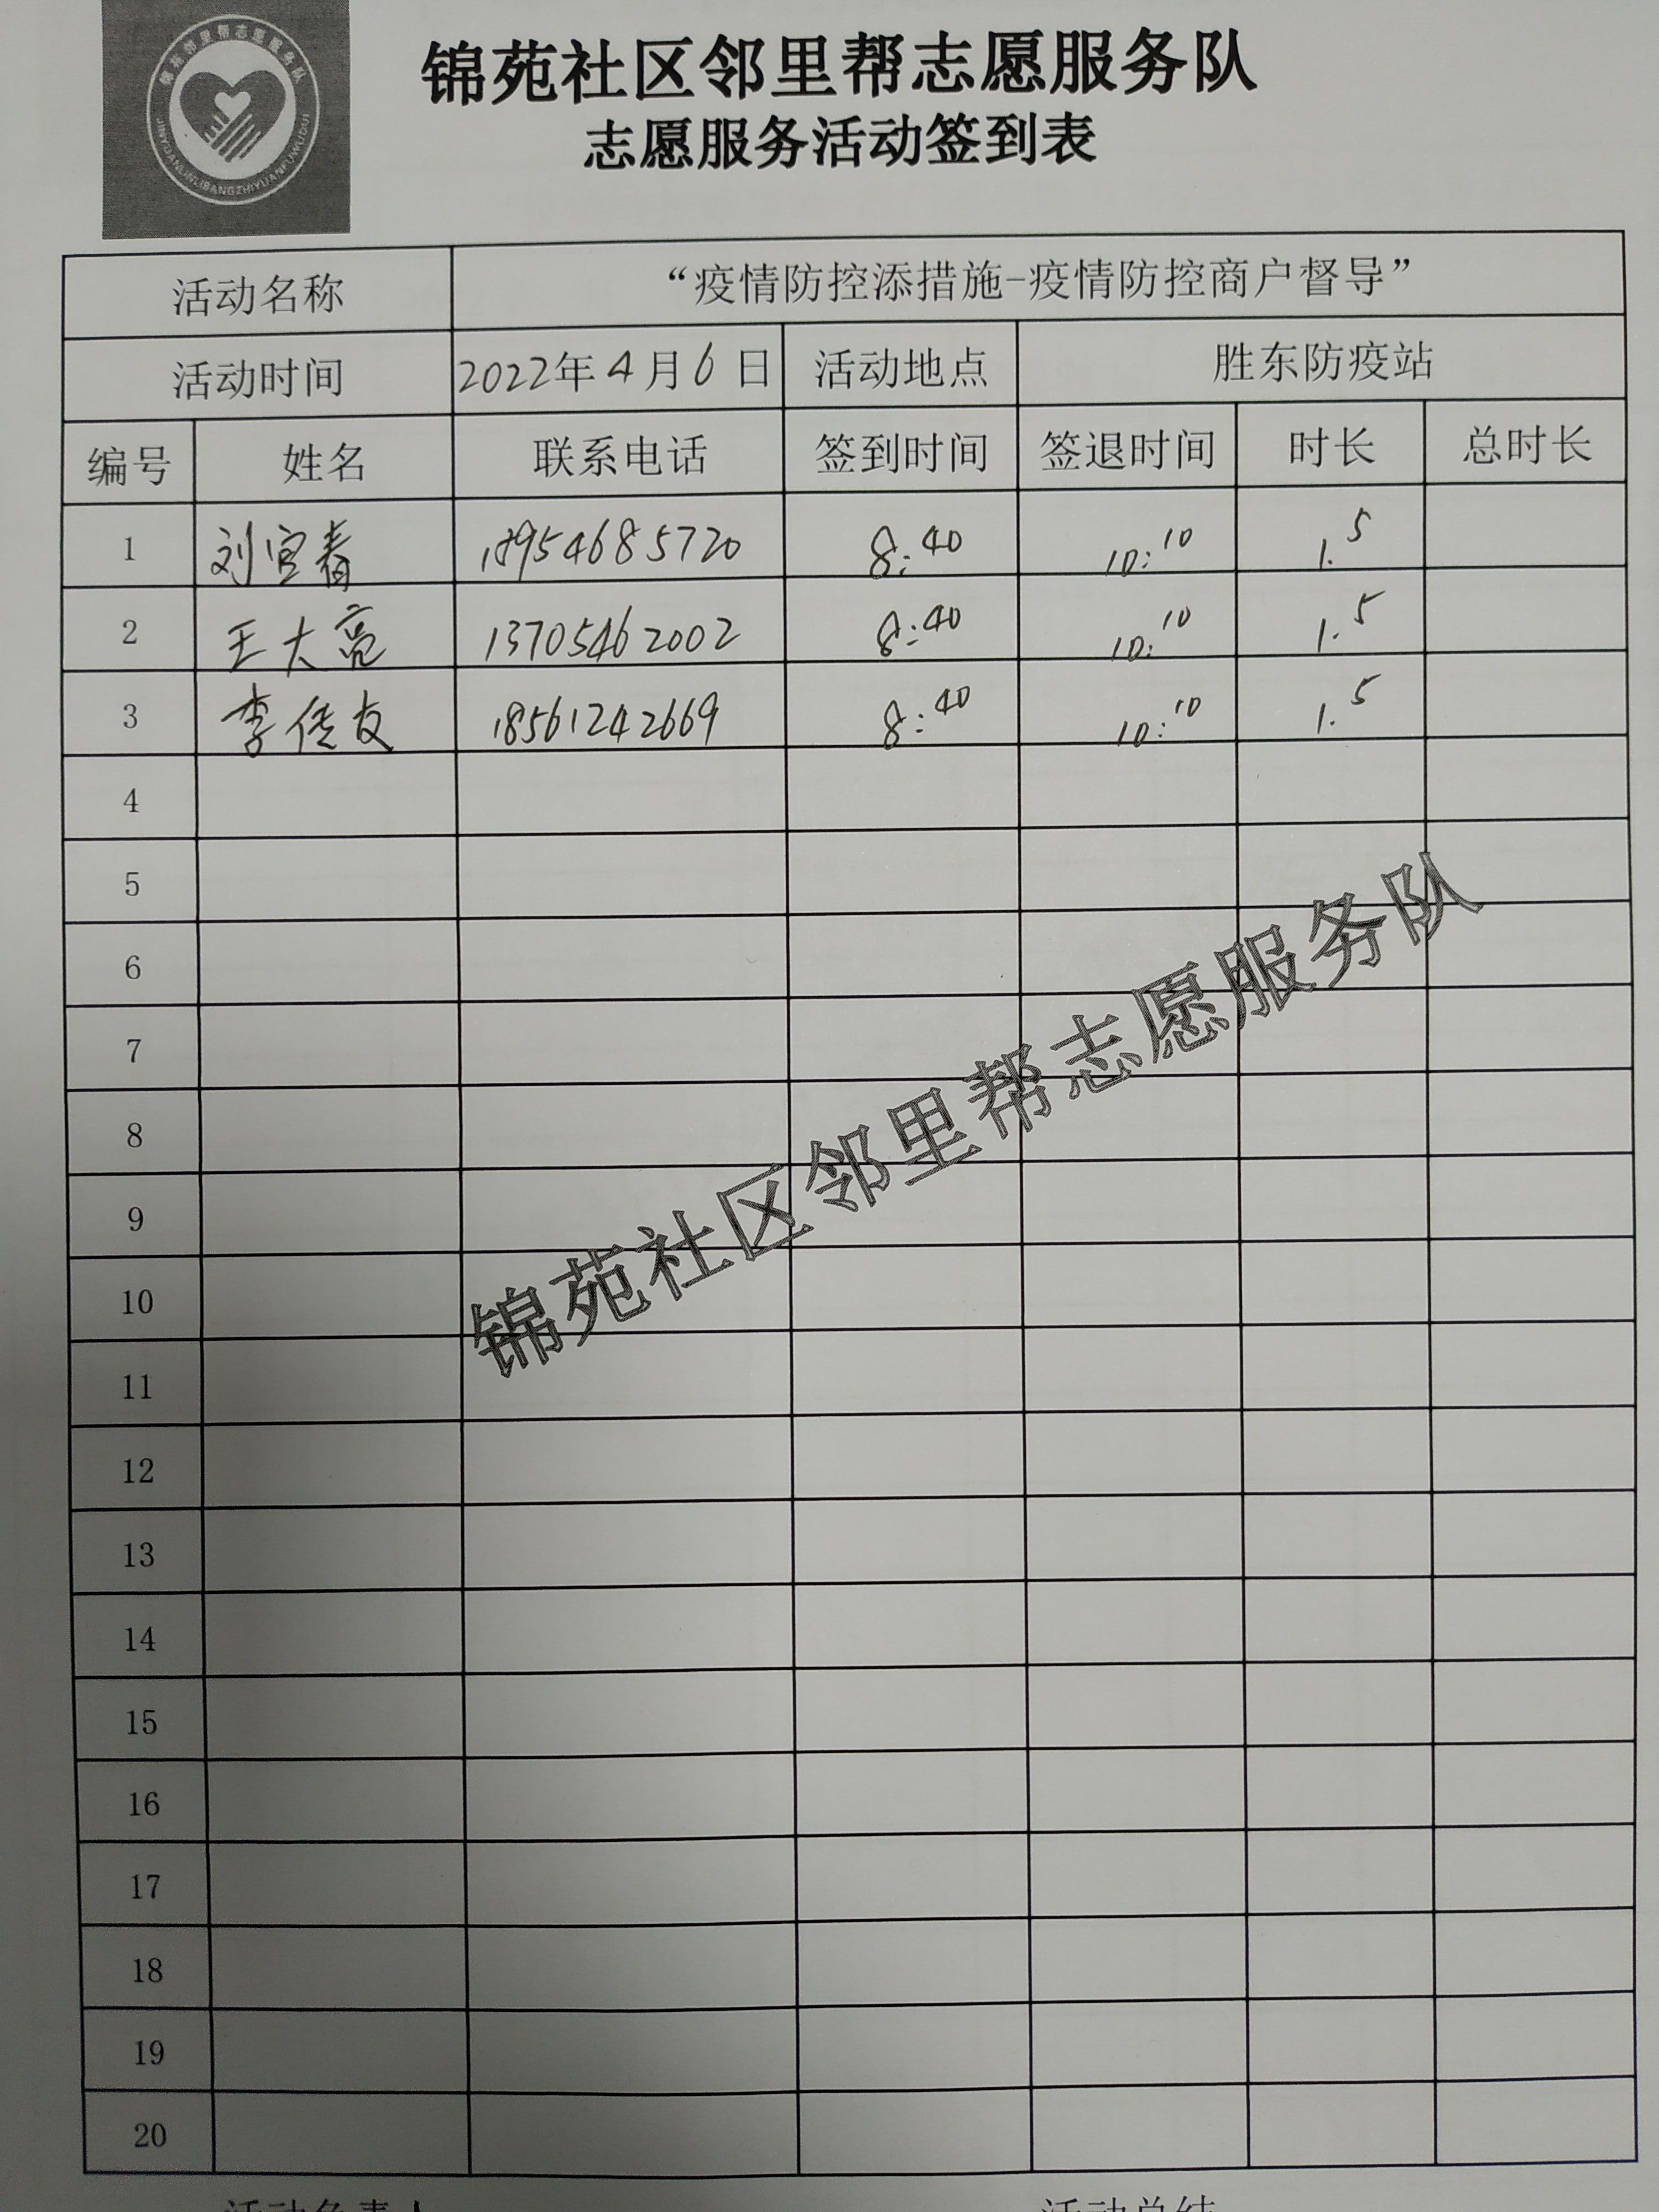 锦苑邻里帮志愿服务队
JINYUANLINLIBANGZHIYUANFUWUDUI
锦苑社区邻里帮志愿服务队
志愿服务活动签到表
活动名称 “疫情防控添措施-疫情防控商户督导”
活动时间 2022年4月6日 活动地点 胜东防疫站
编号 姓名 联系电话 签到时间 签退时间 时长 总时长
1 刘宜春 18954685720 8:40 10:10 1.5
2 王大亮 13705462002 8:40 10:10 1.5
3 李传友 18561242669 8:40 10:10 1.5
4
5
6
7
8
9
10
11
12
13
14
15
16
17
18
19
20
锦苑社区邻里帮志愿服务队
活动负责人 活动总结